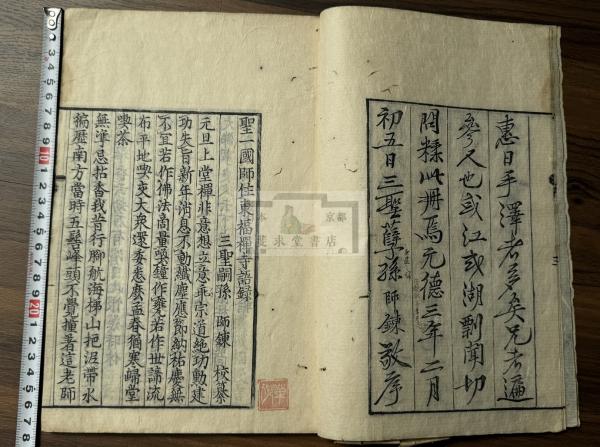 惠日手澤者多矣兄者遍
參尺也或江或湖剽聞切
問釋此冊焉元德三年二月
初五日三聖孽孫師鍊敬序
聖一國師住東福禪寺語錄
三聖嗣孫 師鍊 校纂
元旦上堂禪非意想立意乖宗道絶功勳建
功失旨新年消息不動纖塵應節納祐慶無
不宜若作佛法商量喫鐘作甕若作世諦流
布平地喫交大衆還委悉麼孟春猶寒歸堂
喫茶
無準忌拈香我昔行脚航海梯山拖泥帶水
徧歷南方當時五髻峰頭不覺撞著這老師
本 京都
堂書店